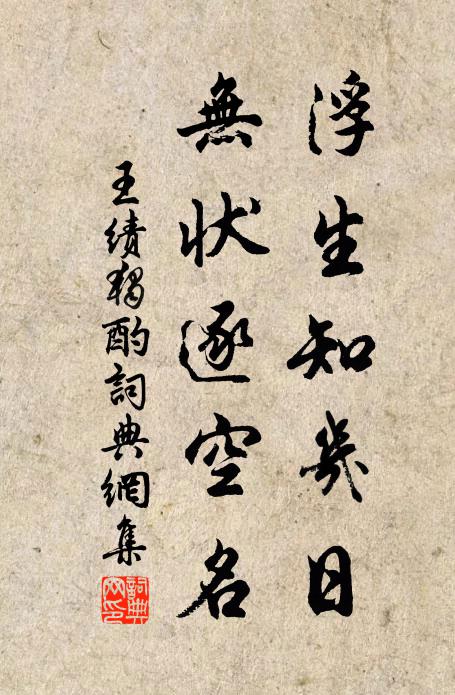 浮生知幾日
無狀逐空名
王績獨酌詞典網集
詞典網印